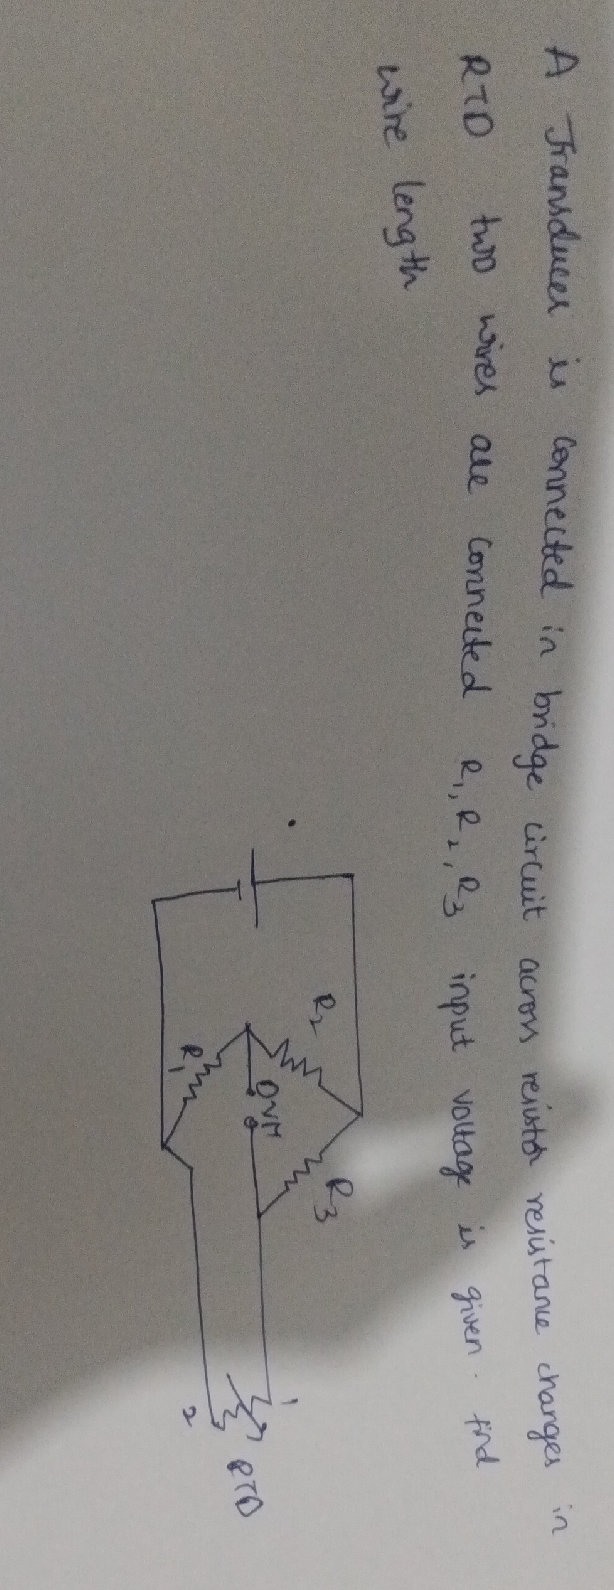 A Transducer is connected in bridge circuit across resistor resistance changes in
RTD two wires are connected R1, R2, R3 input voltage is given. find
wire length
R2
R3
DVM
R1
1
2
RTD